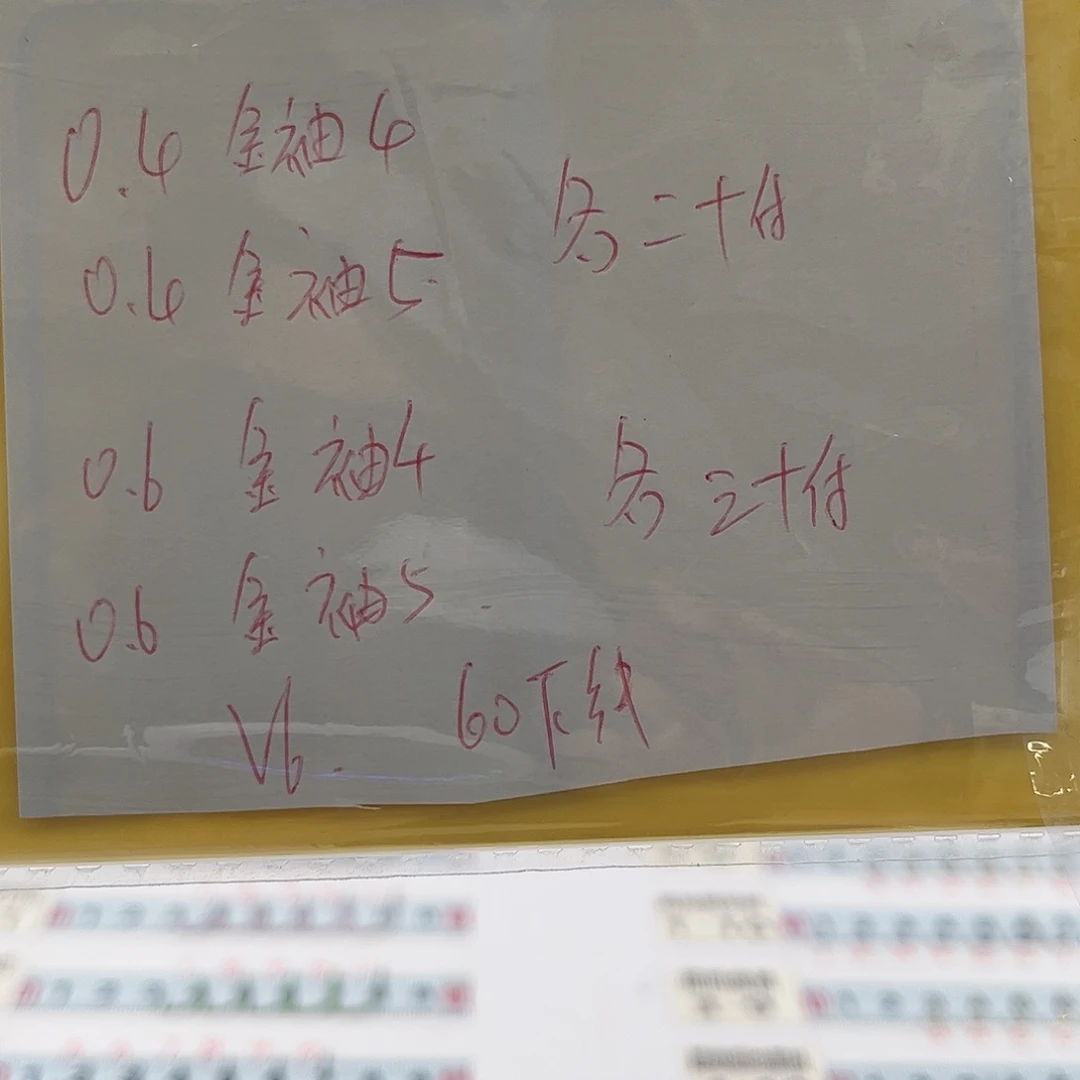 0.4 金袖4
各二十付
0.4 金袖5
0.6 金袖4
各三十付
0.6 金袖5
V6. 60下线